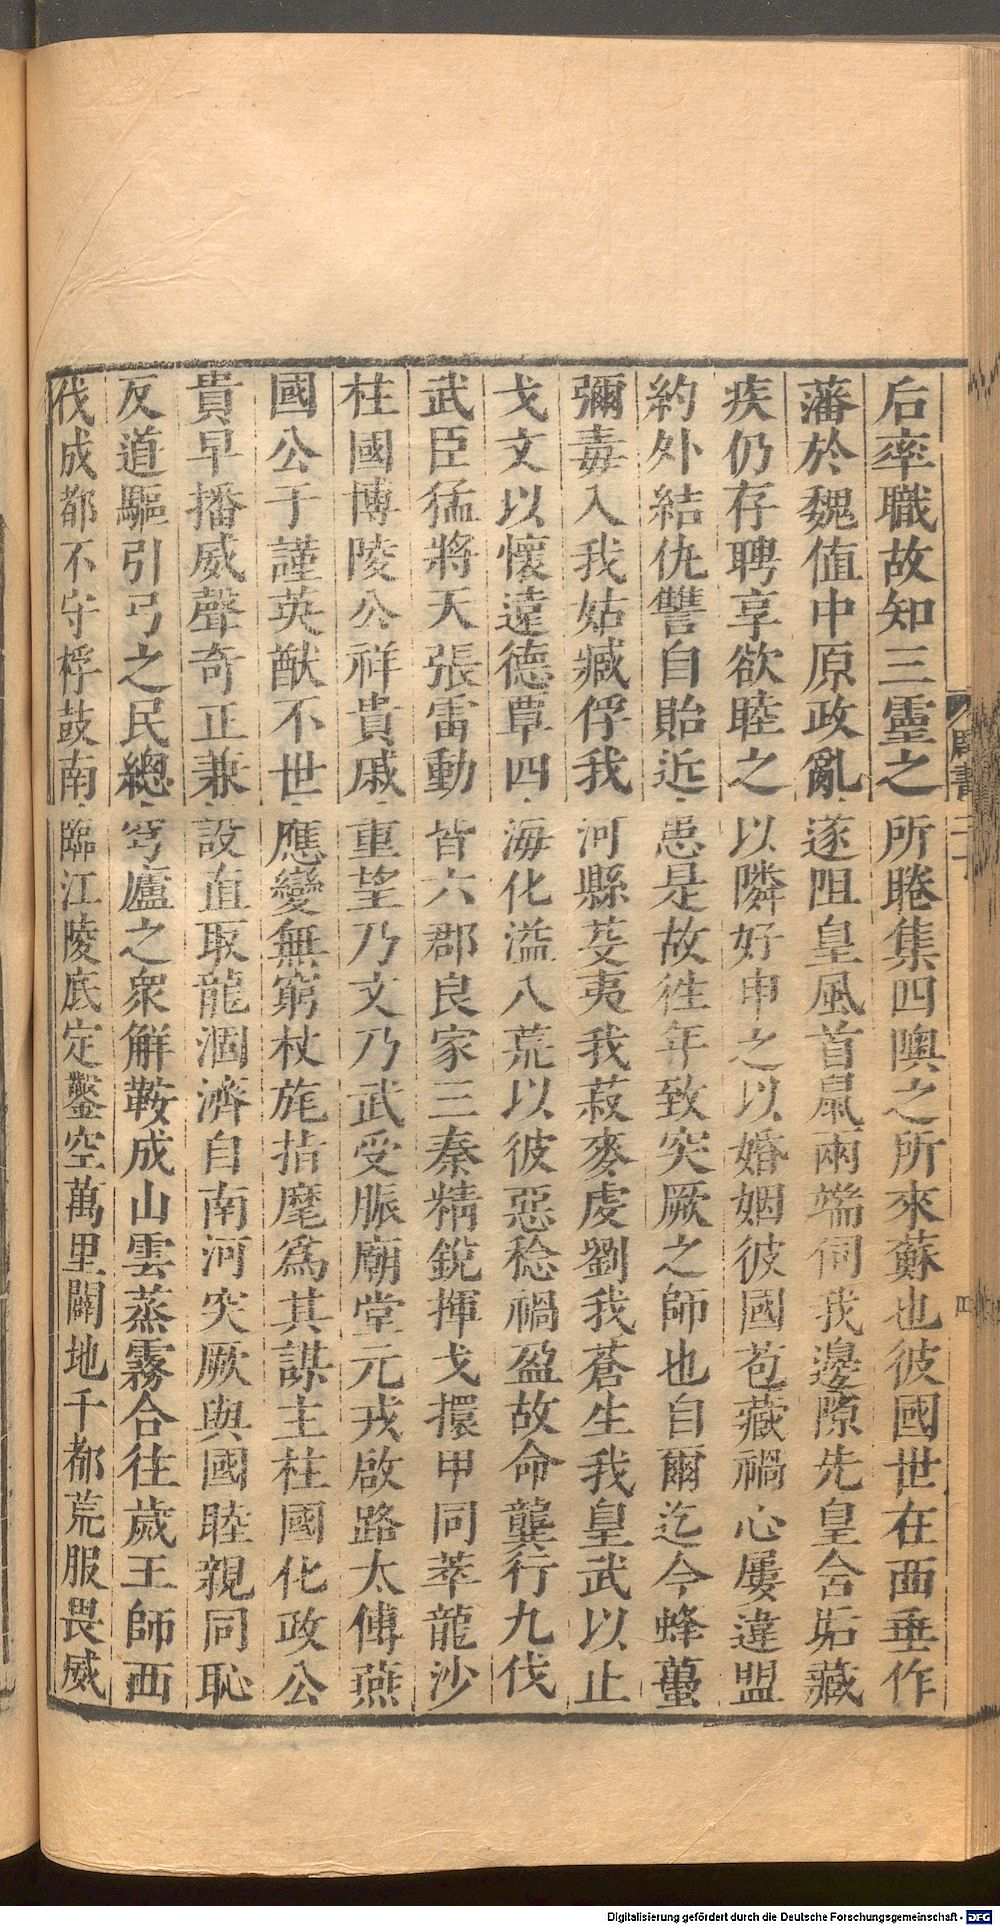 后率職故知三靈之所睠集四隩之所來蘇也彼國世在西垂作
藩於魏值中原政亂遂阻皇風首鼠兩端伺我邊隙先皇含垢藏
疾仍存聘享欲睦之以隣好申之以婚姻彼國苞藏禍心屢違盟
約外結仇讐自貽近患是故徃年致突厥之師也自爾迄今蜂蠆
彌毒入我姑臧俘我河縣芟夷我菽麥虔劉我蒼生我皇武以止
戈文以懷遠德覃四海化溢八荒以彼惡稔禍盈故命龔行九伐
武臣猛將天張雷動皆六郡良家三秦精銳揮戈擐甲同萃龍沙
柱國博陵公祥貴戚重望乃文乃武受脤廟堂元戎啟路太傅燕
國公于謹英猷不世應變無窮杖旄指麾爲其謀主柱國化政公
貴早播威聲奇正兼設直取龍涸濟自南河突厥與國睦親同恥
反道驅引弓之民總穹廬之衆解鞍成山雲蒸霧合往歲王師西
伐成都不守桴鼓南臨江陵底定鑿空萬里闢地千都荒服畏威
周書
Digitalisierung gefördert durch die Deutsche Forschungsgemeinschaft - DFG